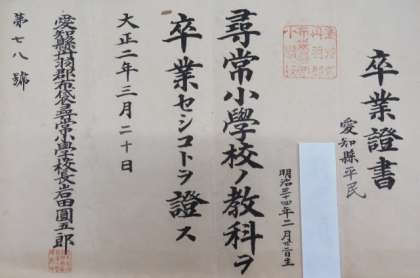 卒業證書
愛知縣平民
明治三十四年二月廿二日生
尋常小學校ノ教科ヲ
卒業セシコトヲ證ス
大正二年三月二十日
愛知縣丹羽郡布袋尋常小學校長岩田圓五郎
第七八號